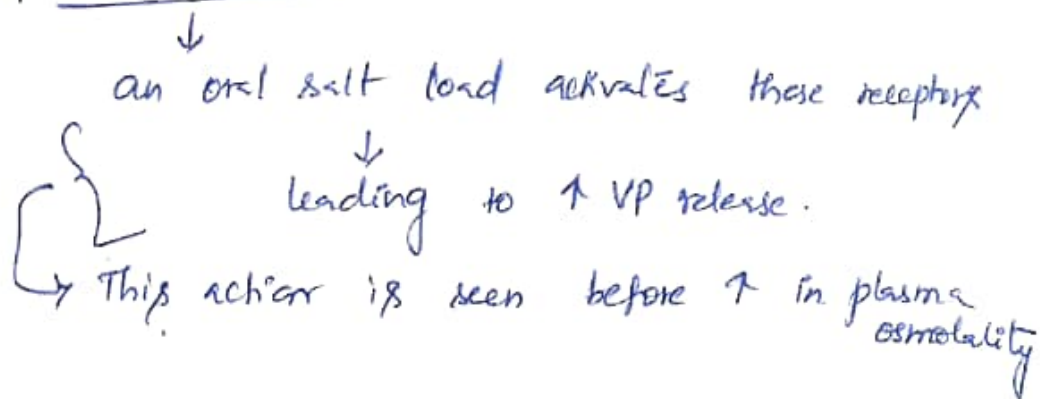 ↓
an oral salt load activates these receptors
↓
leading to ↑ VP release.
→ This action is seen before ↑ in plasma
osmolality